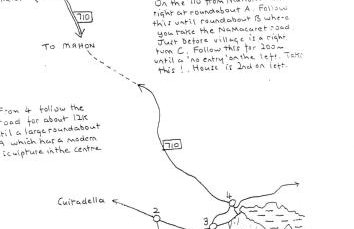 710
TO MAHON
On the 710 from
right at roundabout A. Follow
this until roundabout B where
you take the Namacaret road
Just before village is a right
turn C. Follow this for 200m
until a 'no entry' on the left. Take
this!. House is 2nd on left.
From 4 follow the
road for about 12K
til a large roundabout
A which has a modern
sculpture in the centre
710
Cuitadella
2
3
4